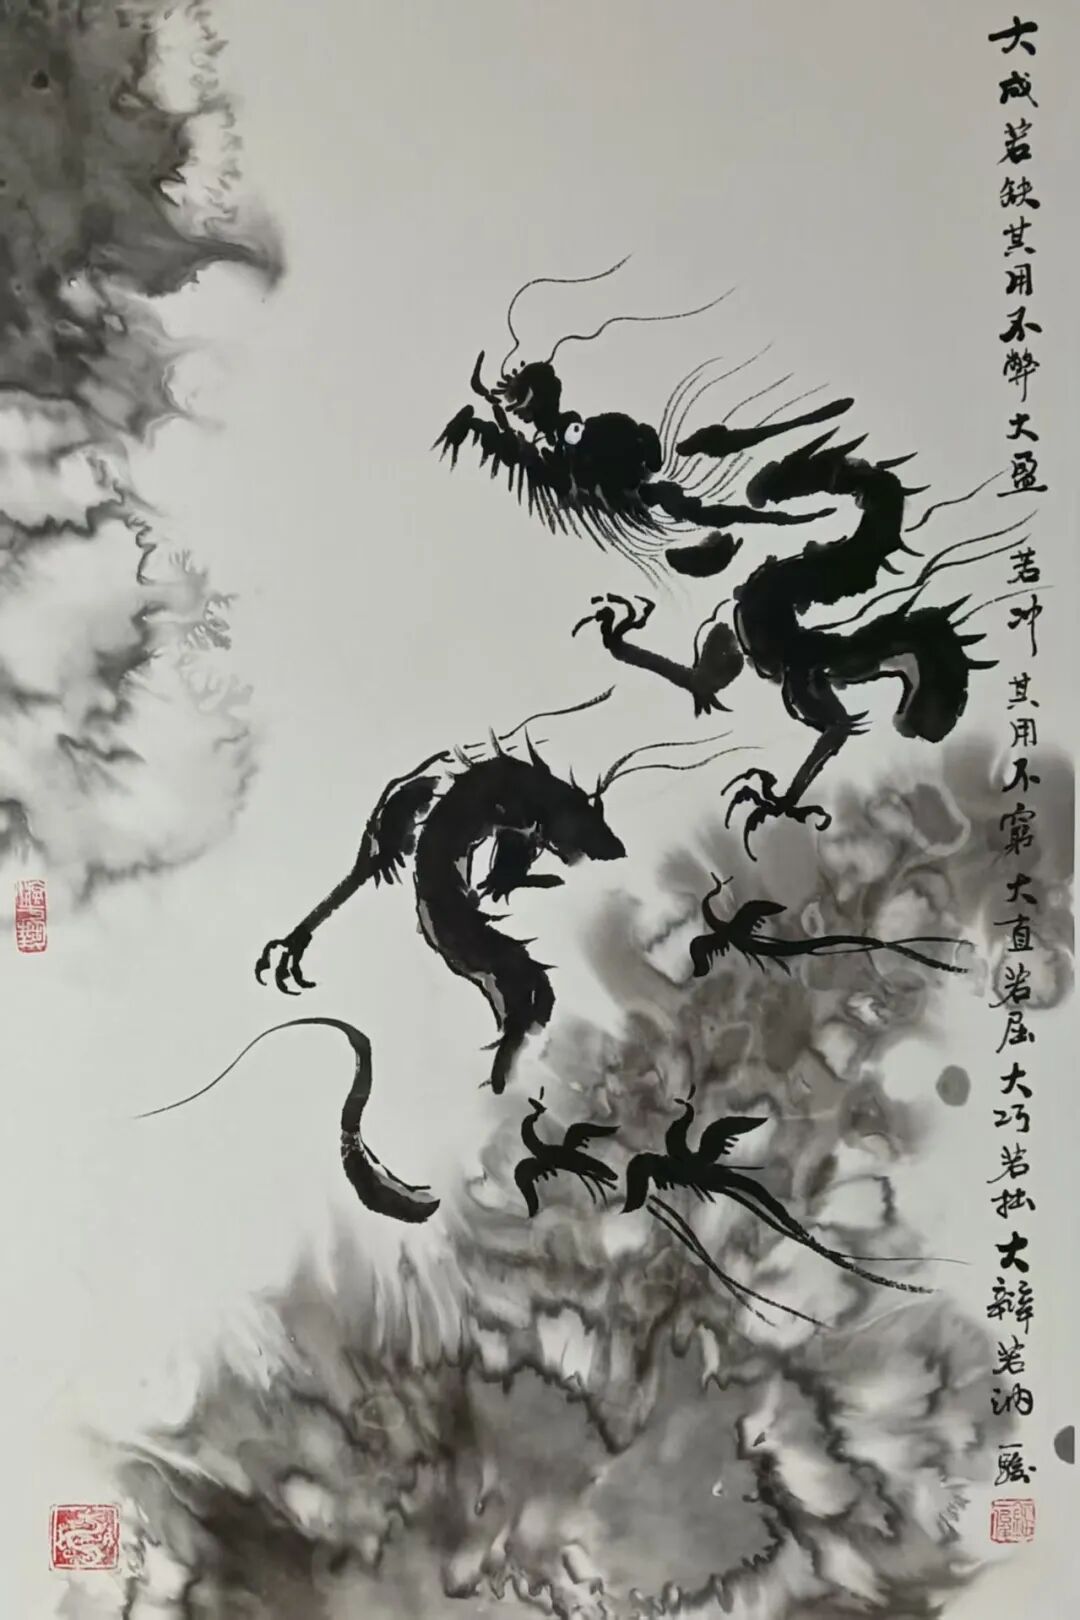 大成若缺其用不弊大盈若冲其用不窮大直若屈大巧若拙大辯若訥